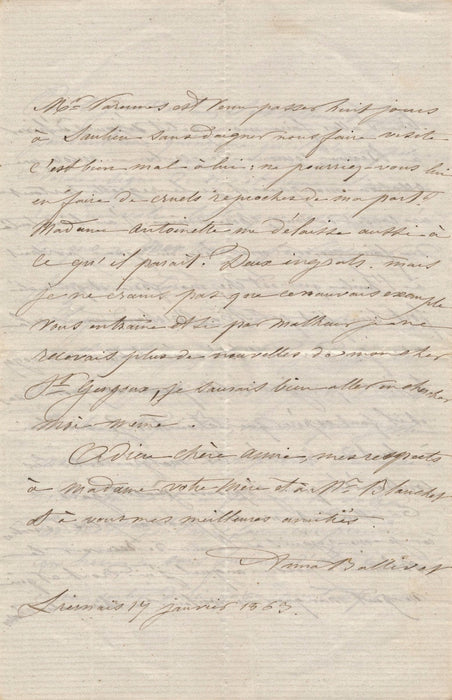 Mr Varennes est venu passer huit jours
à Saulieu sans daigner nous faire visite
c'est bien mal à lui; ne pourriez-vous lui
en faire de cruels reproches de ma part?
Madame Antoinette me délaisse aussi à
ce qu'il parait? Deux ingrats. mais
je ne crains pas que ce mauvais exemple
vous entraine et si par malheur je ne
recevais plus de nouvelles de mon cher
St Gengoux, je saurais bien aller en chercher
moi même.
Adieu chère amie, mes respects
à madame votre mère et à Mr Blanchet
et à vous mes meilleures amitiés.
Anna Ballivet
Liernais 17 janvier 1863.